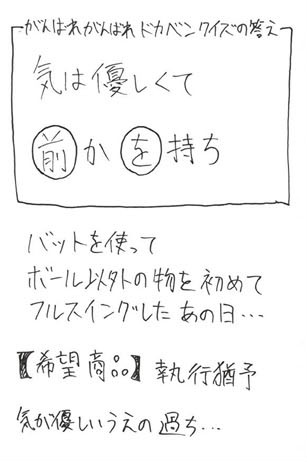 がんばれがんばれドカベンクイズの答え
気は優しくて
前かを持ち
バットを使って
ボール以外の物を初めて
フルスイングしたあの日…
【希望商品】執行猶予
気が優しいうえの過ち…